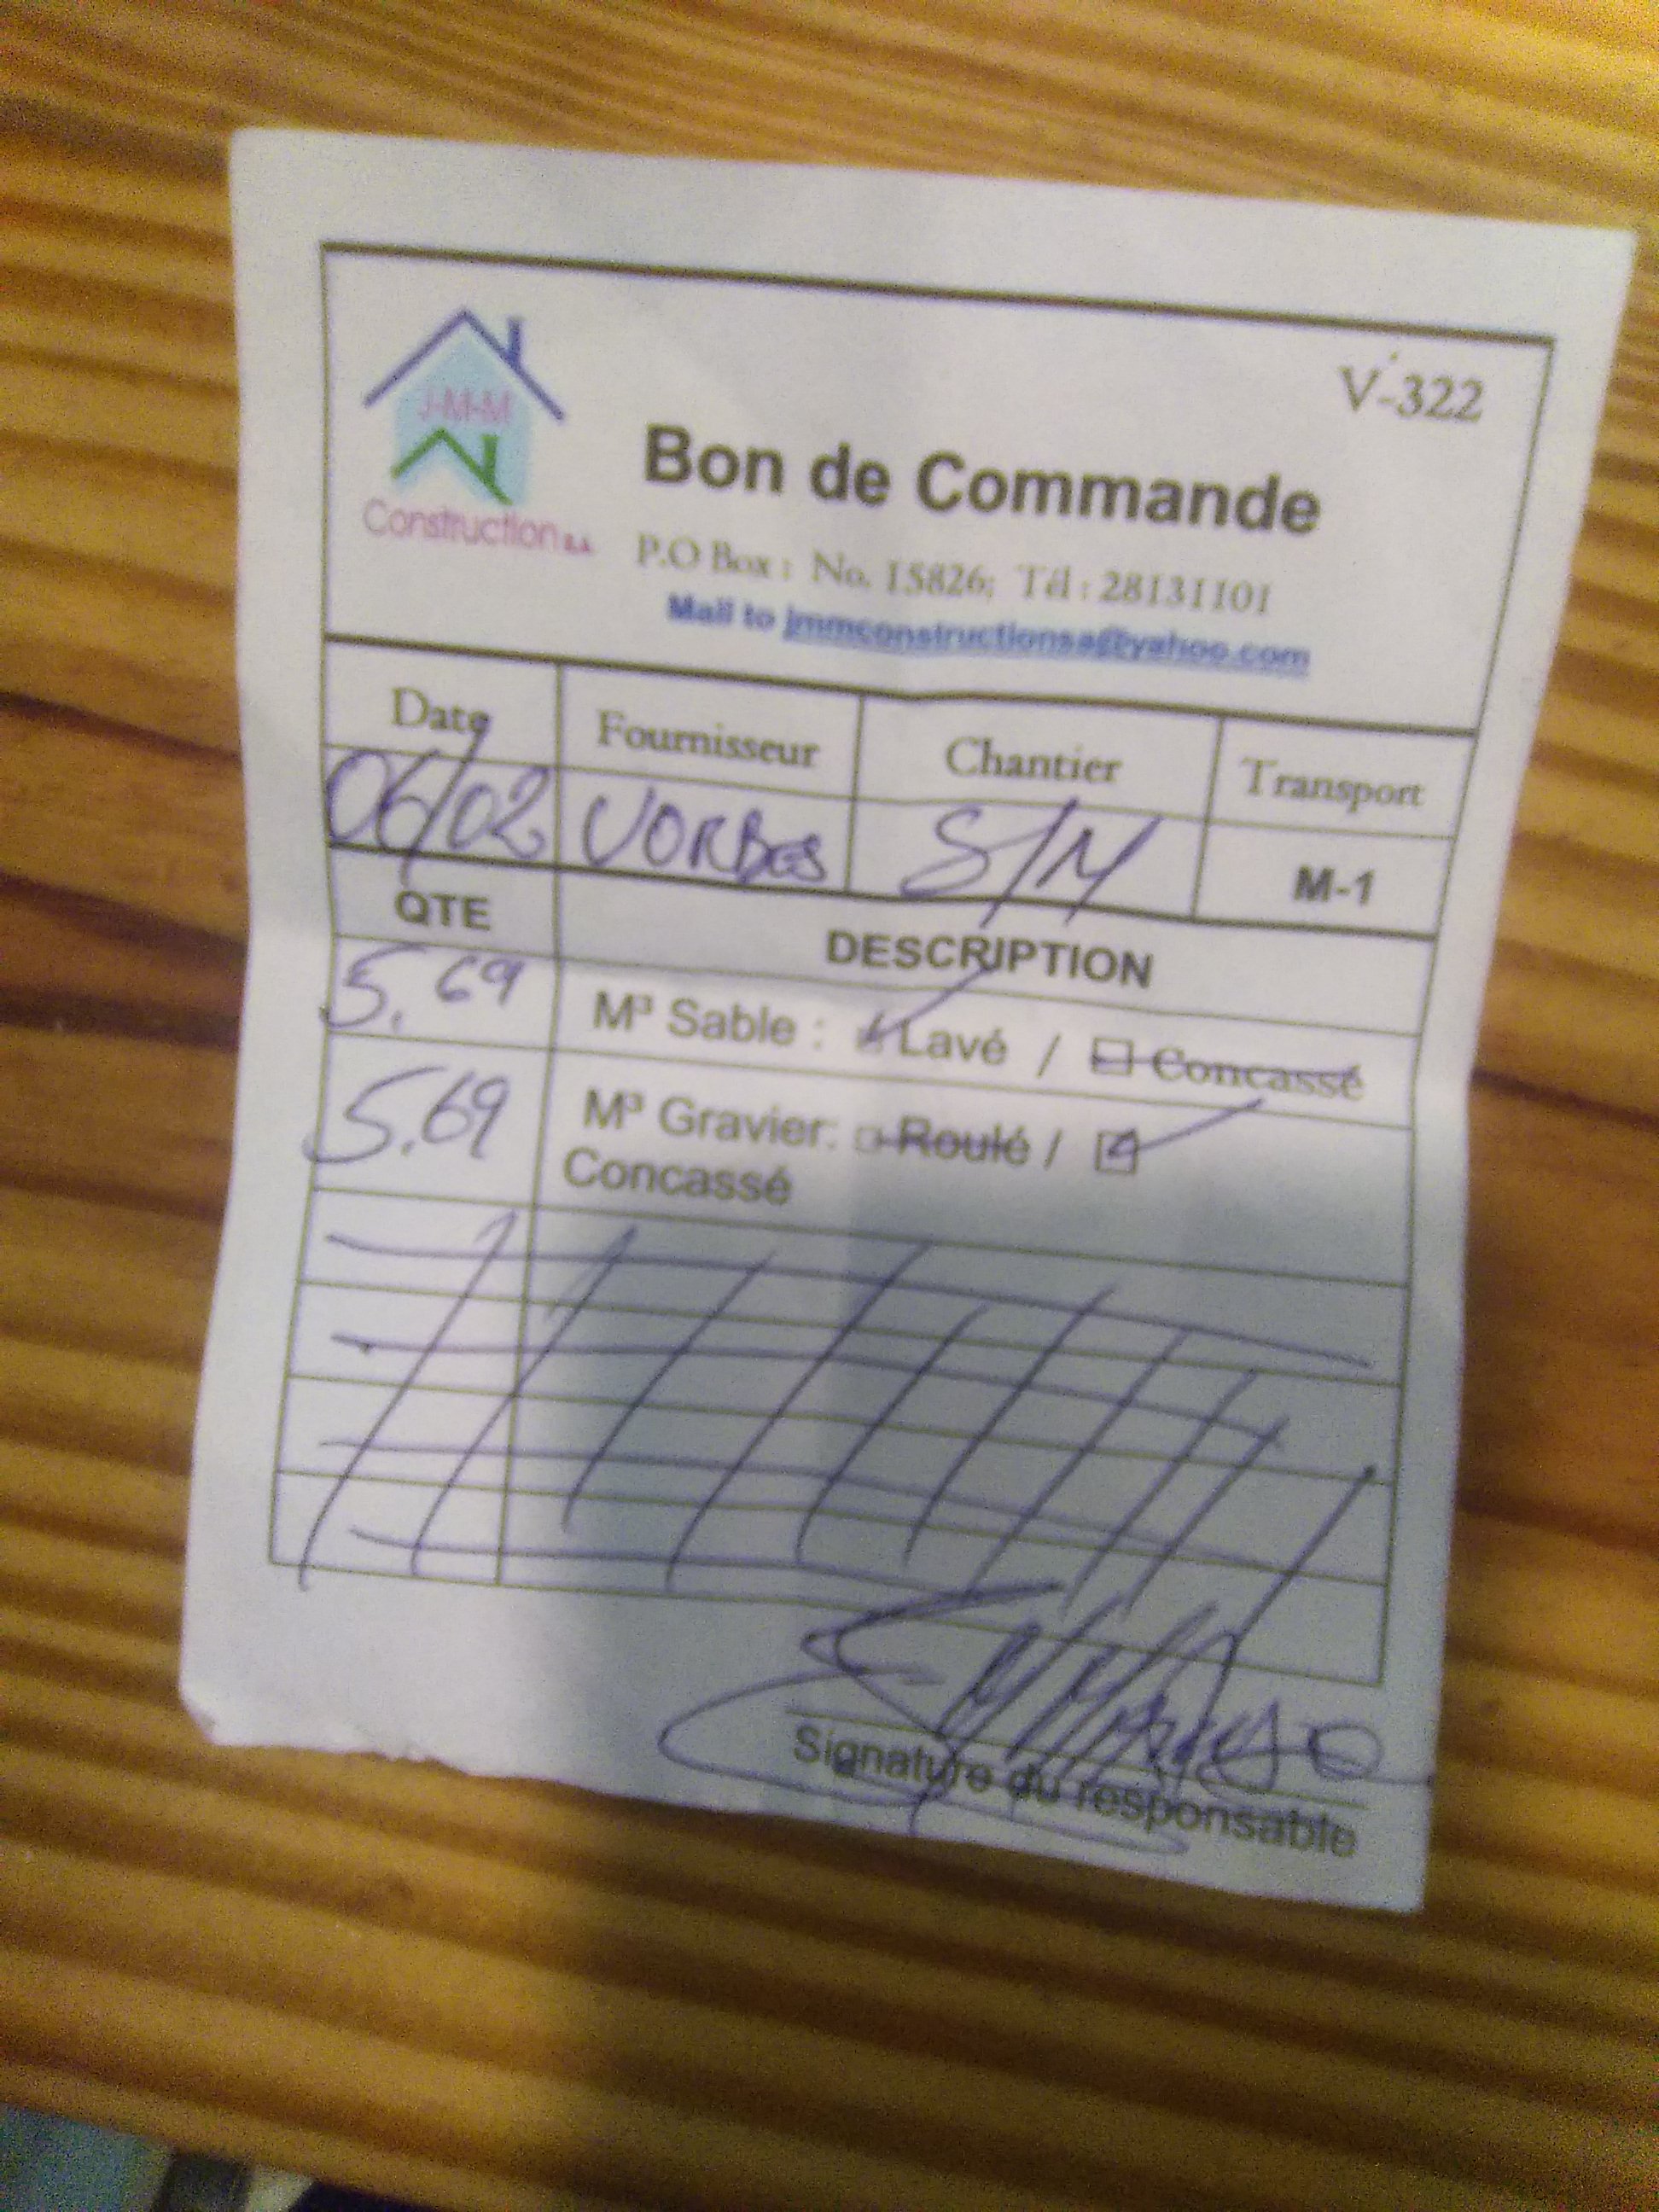 J-M-M
Construction S.A.
V-322
Bon de Commande
P.O Box : No. 15826; Tél : 28131101
Mail to jmmconstructionsa@yahoo.com
Date Fournisseur Chantier Transport
06/02 VORBES S/M M-1
QTE DESCRIPTION
5.69 M³ Sable : Lavé / Concassé
5.69 M³ Gravier: Roulé /
Concassé
Signature du responsable